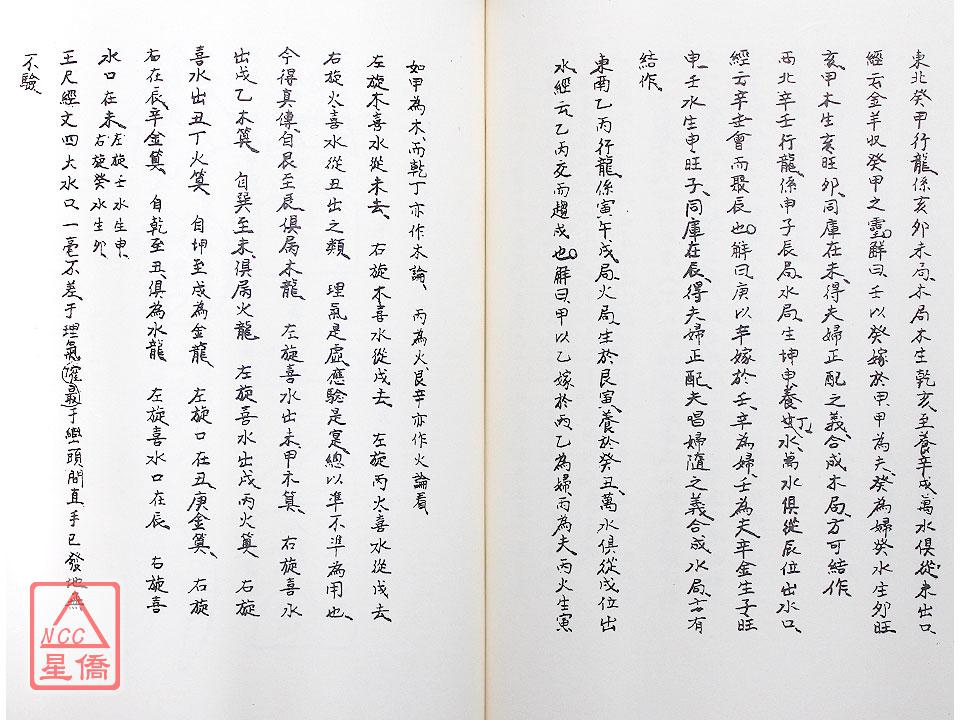 東北癸甲行龍係亥卯未局木局木生乾亥至養辛戌萬水俱從未出口
經云金羊収癸甲之靈解曰壬以癸嫁於甲甲為夫癸為婦癸水生卯旺
亥甲木生亥旺卯同庫在未得夫婦正配之義合成木局方可結作
西北辛壬行龍係申子辰局水局生坤申養丁水萬水俱從辰位出水口
經云辛壬會而聚辰也解曰庚以辛嫁於壬辛為婦壬為夫辛金生子旺
申壬水生申旺子同庫在辰得夫婦正配夫唱婦隨之義合成水局方有
結作
東南乙丙行龍係寅午戌局火局生於艮寅養於癸丑萬水俱從戌位出
水經云乙丙交而趨戌也解曰甲以乙嫁於丙乙為婦丙為夫丙火生寅
如甲為木而乾丁亦作木論丙為火艮辛亦作火論看
左旋木喜水從未去 右旋木喜水從戌去 左旋丙火喜水從戌去
右旋火喜水從丑出之類 理氣是虛應驗是寔總以準不準為用也
今得真傳自艮至辰俱属木龍 左旋喜水出未甲木算 右旋喜水
出戌乙木算 自巽至未俱属火龍 左旋喜水出戌丙火算 右旋
喜水出丑丁火算 自坤至戌為金龍 左旋口在丑庚金算 右旋
右在辰辛金算 自乾至丑俱為水龍 左旋喜水口在辰 右旋喜
水口在未 左旋壬水生申
右旋癸水生卯
王尺經文四大水口一毫不差于理氣于巒頭開直手已發地無
不驗
NCC
星僑